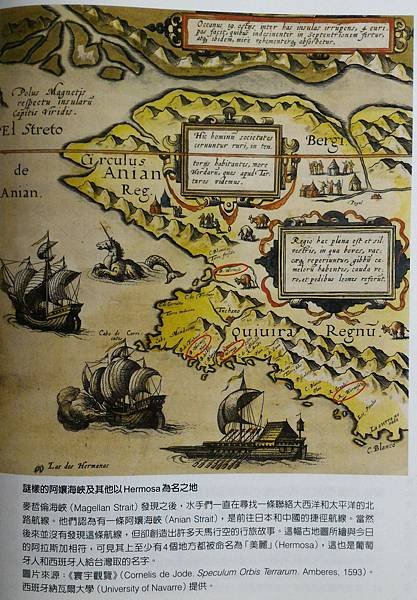 Oceanus 19 ostijs inter has insulas irrumpens, 4 euri-
pos facit, quibus indesinenter in Septentrionem fertur,
atq; ibidem, mire vehementerq; absorbetur.
Polus Magnetis
respectu insularũ
Capitis Viridis.
El Streto
de
Anian.
Circulus
Anian
Reg.
Hic hominũ societates
cernuntur ruri, in ten
torijs habitantes, more
Hordarũ, quos apud Tar-
taros videmus.
Bergi
Regio hac plana est et sil
vestris, in qua boves, vac-
reperiuntur, gibbũ ca-
melorũ habentes, cauda ve
ro, et pedibus leones referũt.
Quiuira Regnũ.
Cabo de Corri
entes
Las dos Hermanas
C. Blanco
謎樣的阿孃海峽及其他以 Hermosa 為名之地
麥哲倫海峽 (Magellan Strait) 發現之後，水手們一直在尋找一條聯絡大西洋和太平洋的北
路航線。他們認為有一條阿孃海峽 (Anian Strait)，是前往日本和中國的捷徑航線。當然
後來並沒有發現這條航線，但卻創造出許多天馬行空的行旅故事。這幅古地圖所繪與今日
的阿拉斯加相符，可見其上至少有4個地方都被命名為「美麗」(Hermosa)，這也是葡萄
牙人和西班牙人給台灣取的名字。
圖片來源：《寰宇觀覽》(Cornelis de Jode. Speculum Orbis Terrarum. Amberes, 1593)。
西班牙納瓦爾大學 (University of Navarre) 提供。